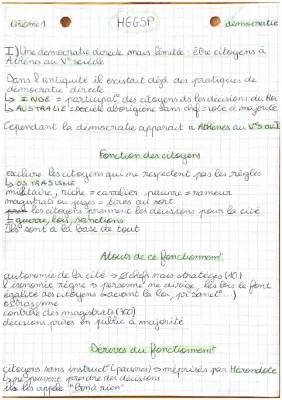 thème 1
HGGSP
démocratie
I) Une démocratie directe mais limitée : être citoyens à
Athènes au Vᵉ siècle
Dans l'antiquité il existait déjà des pratiques de
démocratie directe
↳ INDE = participatᵒ des citoyens ds les décisions du Roi
↳ AUSTRALIE = société aborigène sans chef = vote à majorité
Cependant la démocratie apparait à Athènes au Vᵉs
Fonction des citoyens
exclure les citoyens qui ne respectent pas les règles
↳ OSTRACISME
militaire, riche = cavalier pauvre = rameur
magistrats ou juges = tirés au sort
les citoyens prennent les décisions pour la cité
= guerre, lois, sanctions
Ils sont à la base de tout
Atouts de ce fonctionnement
autonomie de la cité → Ø chefs mais stratèges (10)
L'isonomie règne → personne ne dirige, les lois le font
égalité des citoyens → devant la loi,
ostracisme
contrôle des magistrats (500)
décisions prises en public à majorité
Dérives du fonctionnemᵗ
citoyens sans instructᵒ (pauvres) → méprisés par Hérodote
↳ ne peuvent prendre des décisions
les appelle